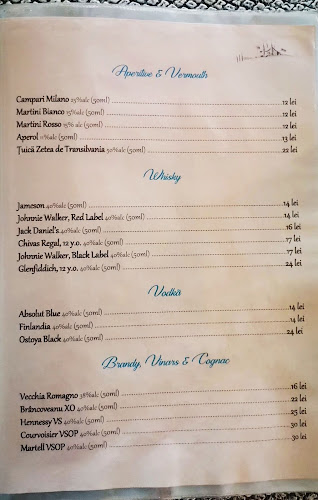 Aperitive & Vermouth
Campari Milano 25%alc (50ml) 12 lei
Martini Bianco 15%alc (50ml) 12 lei
Martini Rosso 15% alc (50ml) 12 lei
Aperol 11%alc (50ml) 13 lei
Țuică Zetea de Transilvania 50%alc (50ml) 22 lei
Whisky
Jameson 40%alc (50ml) 14 lei
Johnnie Walker, Red Label 40%alc (50ml) 14 lei
Jack Daniel's 40%alc (50ml) 16 lei
Chivas Regal, 12 y.o. 40%alc (50ml) 17 lei
Johnnie Walker, Black Label 40%alc (50ml) 17 lei
Glenfiddich, 12 y.o. 40%alc (50ml) 24 lei
Vodkă
Absolut Blue 40%alc (50ml) 14 lei
Finlandia 40%alc (50ml) 14 lei
Ostoya Black 40%alc (50ml) 24 lei
Brandy, Vinars & Cognac
Vecchia Romagna 38%alc (50ml) 16 lei
Brâncoveanu XO 40%alc (50ml) 22 lei
Hennessy VS 40%alc (50ml) 25 lei
Courvoisier VSOP 40%alc (50ml) 30 lei
Martell VSOP 40%alc (50ml) 30 lei